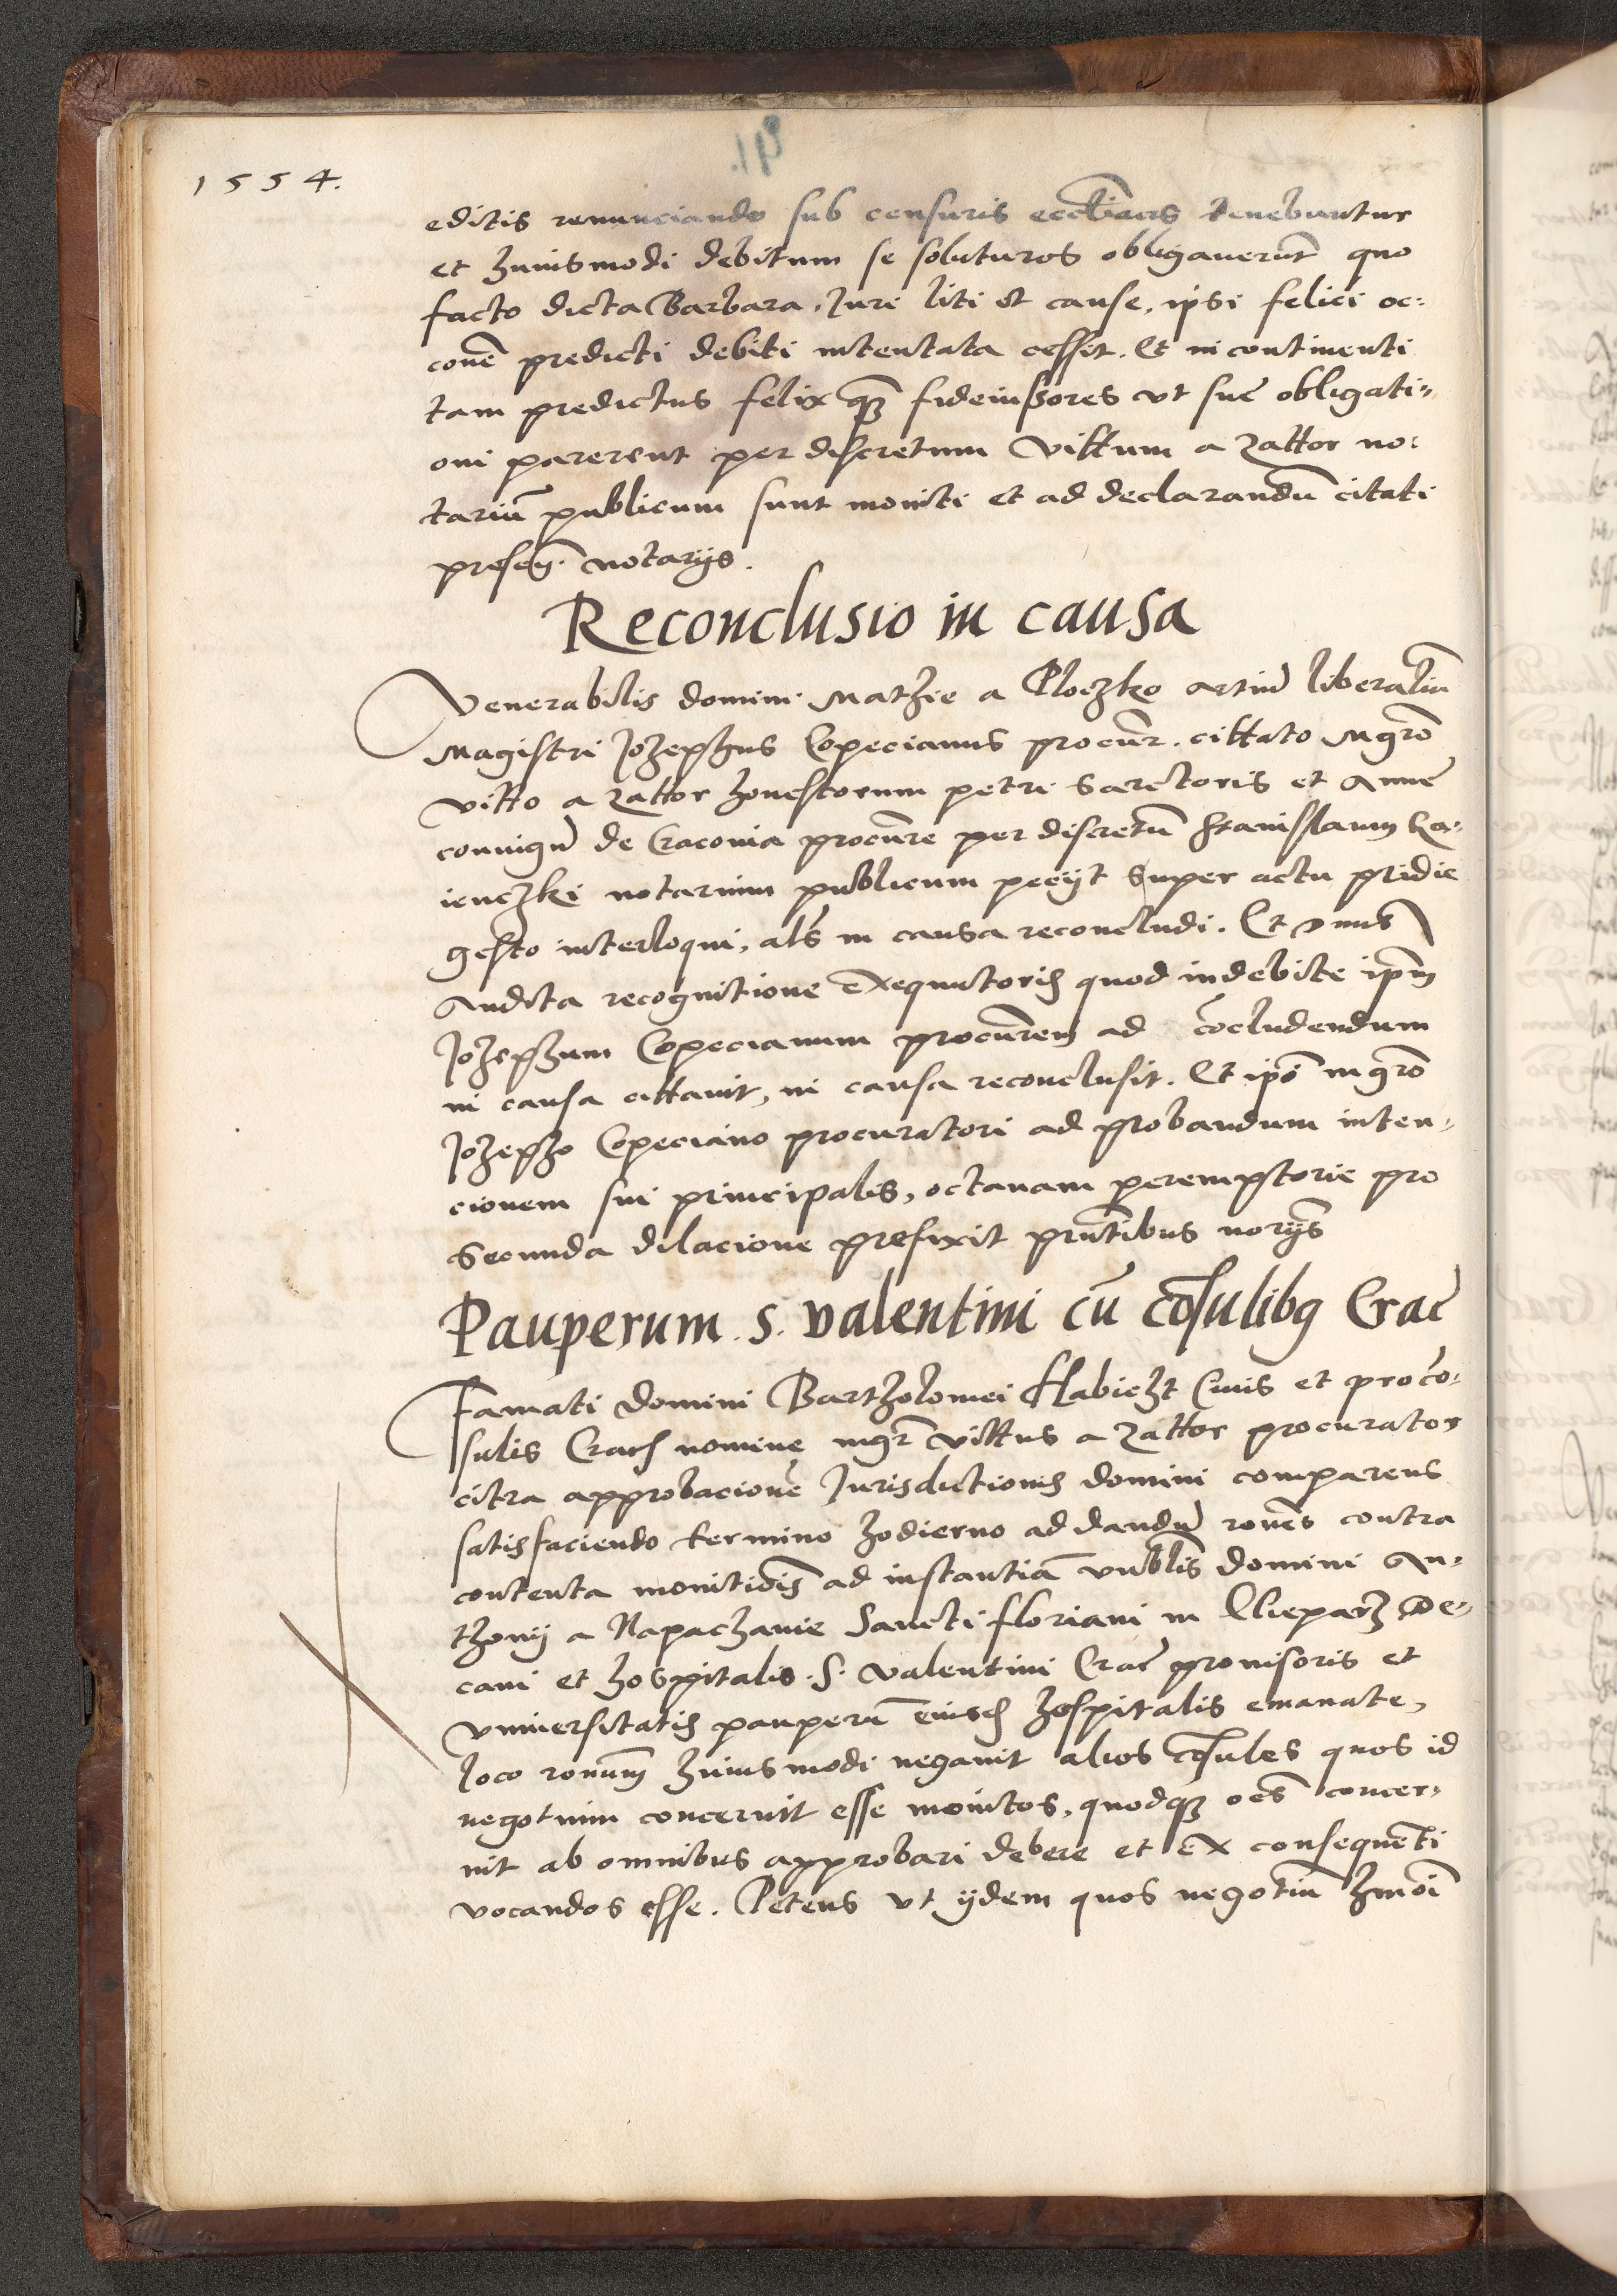 1554.
editis renunciando sub censuris ecclīacis tenebuntur
et huiusmodi debitum se soluturos obligauerūt quo
facto dicta Barbara Juri liti et cause, ipsi felici oc:
conē predicti debiti intentata cessit. Et in continenti
tam predictus felix qȝ fideiussores vt sue obligati=
oni parerent per discretum Vittum a Zattor no:
tariū publicum sunt moniti et ad declarandū citati
presen. notarijs.
Reconclusio in causa
Venerabilis domini Mathie a Ploczko artiū liberaliū
Magistri Jozephus Copecianus procūr. cittato Mgrō
vitto a Zattor honestorum petri Sarctoris et Anne
coniugū de Cracouia procūre per discretū Stanislaum
ienczki notarium publicum pecijt super actu pridie
gesto interloqui, als in causa reconcludi. Et dnus
Audita recognitione exequutoris quod indebite ipm
Jozephum Copecianum procūrem ad cōcludendum
in causa cittauit, in causa reconclusit. Et ipsi mgrō
Jozepho Copeciano procuratori ad probandum inten=
cionem sui principalis, octauam peremptorie pro
Secunda dilacione prefixit prntibus norijs
Pauperum S. valentini cū cōsulibꝯ Crac
Famati domini Bartholomei Habicht Ciuis et procō=
sulis Crac nomine mgr vittus a Zattor procurator
citra approbacionē Jurisdictionis domini comparens
satisfaciendo termino hodierno ad dandū rones contra
contenta monitiōis ad instantiā vnblis domini An=
thonij a Napachanie Sancti floriani in Clepartz De=
cani et hospitalis S. valentini Crac prouisoris et
vniuersitatis pauperū eiusd hospitalis emanate,
loco ronum huiusmodi negauit alios cōsules quos id
negotium concernit esse monitos, quodqȝ oēs concer=
nit ab omnibus approbari debere et ex consequēti
vocandos esse. Petens vt ijdem quos negotiū hmōi